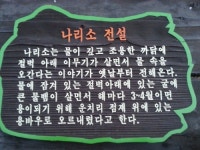 나리소 전설
나리소는 물이 깊고 조용한 까닭에
절벽 아래 이무기가 살면서 물 속을
오간다는 이야기가 옛날부터 전해온다.
물에 잠겨 있는 절벽아래에 있는 굴에
큰 물뱀이 살면서 해마다 3~4월이면
용이되기 위해 운치리 점재 위에 있는
용바우로 오르내렸다고 한다.